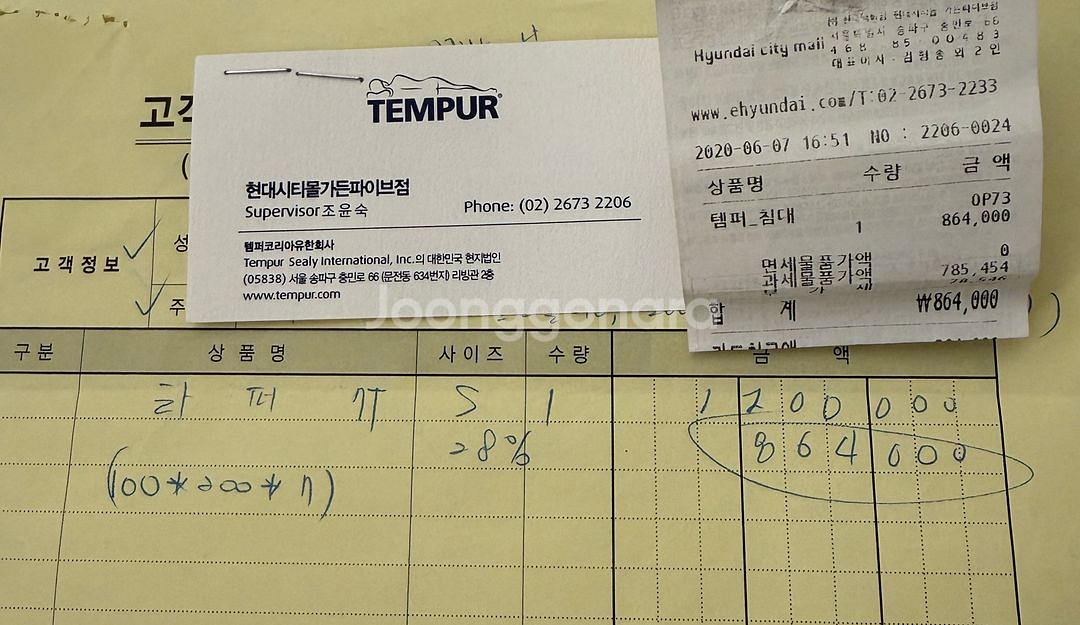 고객
TEMPUR
현대시티몰가든파이브점
Supervisor 조윤숙
Phone: (02) 2673 2206
템퍼코리아유한회사
Tempur Sealy International, Inc.의 대한민국 현지법인
(05838) 서울 송파구 충민로 66 (문전동 634번지) 리빙관 2층
www.tempur.com
Hyundai city mall
서울특별시 송파구 충민로 66
468 85 00483
대표이사 김형종 외 2인
www.ehyundai.com/T:02-2673-2233
2020-06-07 16:51 NO : 2206-0024
상품명 수량 금액
OP73
템퍼_침대 1 864,000
면세물품가액 0
과세물품가액 785,454
합 계 ₩864,000
고객정보
성
주
Joonggonara
구분 상품명 사이즈 수량 금액
S 1 1200000
28% 864000
(100*200*7)